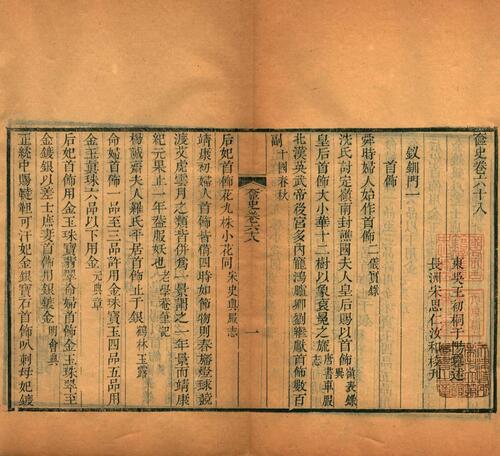 奩史卷六十八
東吳王初桐于陽纂述
長洲宋思仁汝和校刊
釵釧門一
首飾
舜時婦人始作首飾二儀實錄
沈氏討定嶺南封譙國夫人皇后賜以首飾嶺表錄異
皇后首飾大小華十二樹以象衮冕之旒唐書車服志
北漢英武帝後宮多內寵鴻臚卿劉繼顒獻首飾數百
副十國春秋
奩史卷六十八
一
后妃首飾花九株小花同朱史輿服志
靖康初婦人首飾皆備四時如節物則春旛燈毬競
渡艾虎雲月之類皆併為一景謂之一年景而靖康
紀元果止一年蓋服妖也老學菴筆記
楊誠齋夫人羅氏平居首飾止于銀鶴林玉露
命婦首飾一品至三品許用金珠寶玉四品五品用
金玉真珠六品以下用金元典章
后妃首飾用金玉珠寶翡翠命婦首飾用珠翠至
金鍍銀以差士庶妻首飾用銀鍍金明會典
正統中賜韃靼可汗妃金銀寶石首飾叭剌母妃鍍